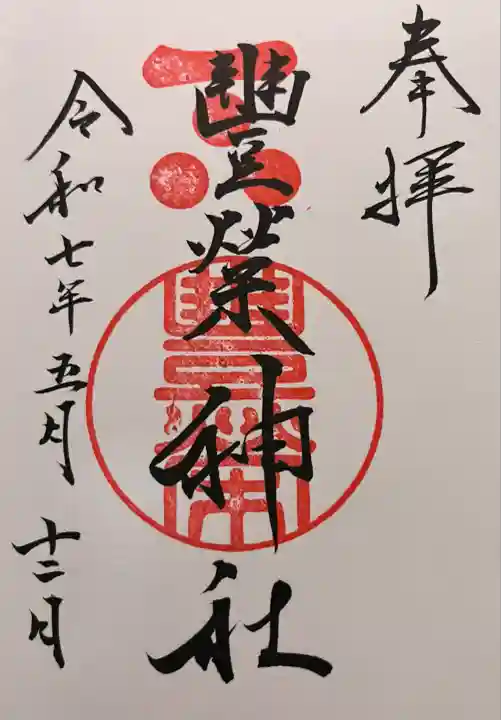 奉拝
豊榮神社
令和七年五月十二日